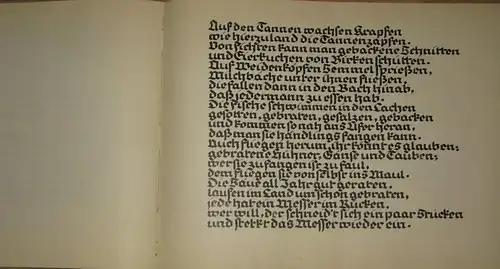 Auf den Tannen wachsen Krapfen
wie hierzuland die Tannenzapfen.
Von Fichten kann man gebackene Schnitten
und Eierkuchen von Birken schütten.
Auf Weidenköpfen Semmel sprießen,
Milchbäche unter ihnen fließen,
die fallen dann in den Bach hinab,
daß jedermann zu essen hab.
Die Fische schwimmen in den Lachen
gesotten, gebraten, gesalzen, gebacken
und kommen so nah ans Ufer heran,
daß man sie handlings fangen kann.
Auch fliegen herum, ihr könnt es glauben,
gebratene Hühner, Gänse und Tauben;
wer sie zu fangen ist zu faul,
dem fliegen sie von selbst ins Maul.
Die Säue all Jahr gut geraten,
laufen im Land um schon gebraten,
jede hat ein Messer im Rücken,
wer will, der schneid't sich ein paar Stücken
und steckt das Messer wieder ein.